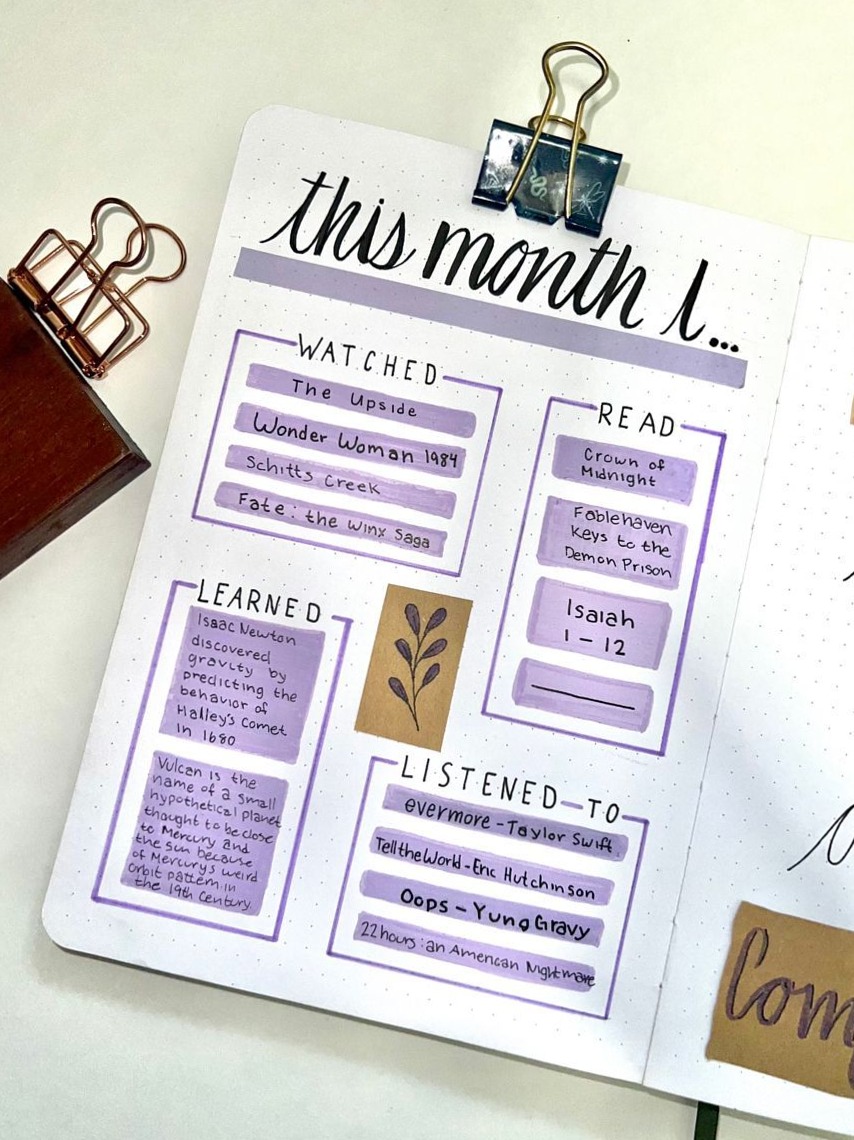 this month I...
WATCHED
The Upside
Wonder Woman 1984
Schitts Creek
Fate: the Winx Saga
READ
Crown of
Midnight
Fablehaven
Keys to the
Demon Prison
Isaiah
1-12
LEARNED
Isaac Newton
discovered
gravity by
predicting the
behavior of
Halley's Comet
in 1680
Vulcan is the
name of a small
hypothetical planet
thought to be close
to Mercury and
the sun because
of Mercury's weird
orbit pattern in
the 19th Century.
LISTENED-TO
evermore - Taylor Swift
Tell the World - Eric Hutchinson
Oops - Yung Gravy
22 hours: an American Nightmare
Com